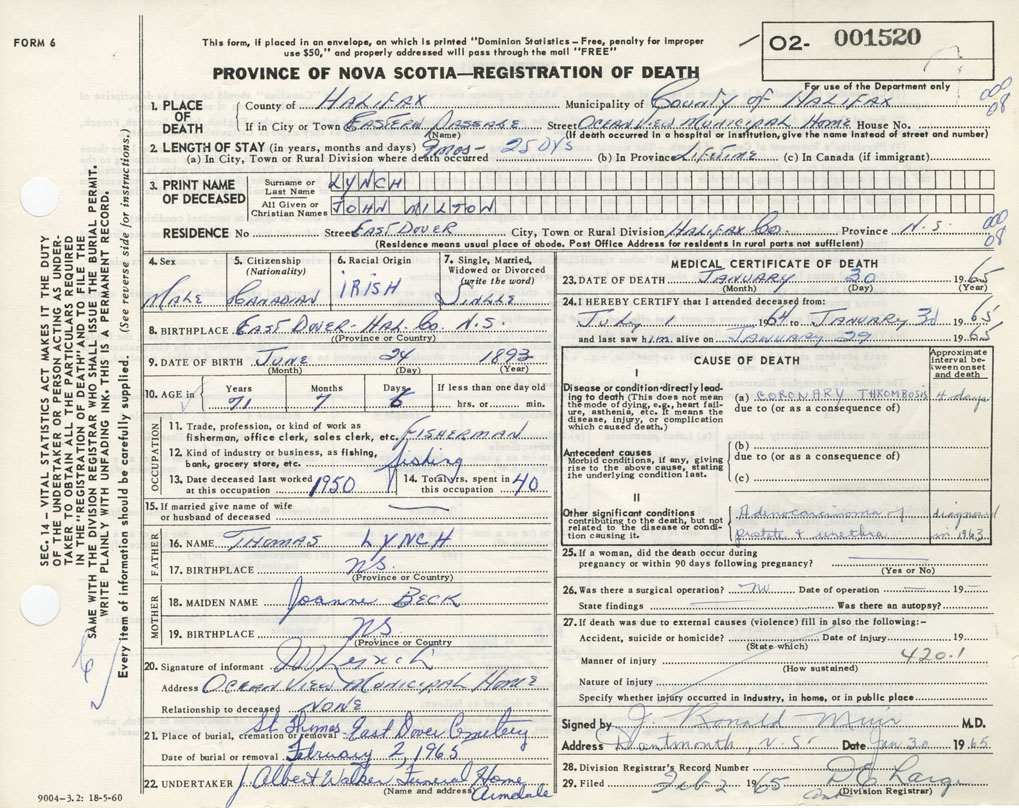 FORM 6
This form, if placed in an envelope, on which is printed "Dominion Statistics – Free, penalty for improper
use $50," and properly addressed will pass through the mail "FREE"
O2- 001520
For use of the Department only
PROVINCE OF NOVA SCOTIA—REGISTRATION OF DEATH
SEC. 14 – VITAL STATISTICS ACT MAKES IT THE DUTY
OF THE UNDERTAKER OR PERSON ACTING AS UNDER-
TAKER TO OBTAIN ALL THE PARTICULARS REQUIRED
IN THE "REGISTRATION OF DEATH" AND TO FILE THE
SAME WITH THE DIVISION REGISTRAR WHO SHALL ISSUE THE BURIAL PERMIT.
WRITE PLAINLY WITH UNFADING INK. THIS IS A PERMANENT RECORD.
Every item of information should be carefully supplied. (See reverse side for instructions.)
1. PLACE OF DEATH
County of HALIFAX Municipality of COUNTY OF HALIFAX
If in City or Town EASTERN PASSAGE Street OCEAN VIEW MUNICIPAL HOME House No.
(Name) (If death occurred in a hospital or institution, give the name instead of street and number)
000
08
2. LENGTH OF STAY (in years, months and days)
(a) In City, Town or Rural Division where death occurred mos- 25 DYS (b) In Province LIFETIME (c) In Canada (if immigrant)
3. PRINT NAME OF DECEASED
Surname or Last Name LYNCH
All Given or Christian Names JOHN MILTON
RESIDENCE No Street EAST DOVER City, Town or Rural Division HALIFAX CO. Province N.S.
(Residence means usual place of abode. Post Office Address for residents in rural parts not sufficient)
000
08
4. Sex MALE
5. Citizenship (Nationality) CANADIAN
6. Racial Origin IRISH
7. Single, Married, Widowed or Divorced (write the word) SINGLE
8. BIRTHPLACE EAST DOVER- HAL. CO. N.S.
(Province or Country)
9. DATE OF BIRTH JUNE 24 1893
(Month) (Day) (Year)
10. AGE in Years 71 Months 7 Days 6 If less than one day old hrs. or min.
OCCUPATION
11. Trade, profession, or kind of work as fisherman, office clerk, sales clerk, etc. FISHERMAN
12. Kind of industry or business, as fishing, bank, grocery store, etc. fishing
13. Date deceased last worked at this occupation 1950 14. Total yrs. spent in this occupation 40
15. If married give name of wife or husband of deceased
FATHER
16. NAME THOMAS LYNCH
17. BIRTHPLACE N.S.
(Province or Country)
MOTHER
18. MAIDEN NAME Joanne BECK
19. BIRTHPLACE N.S.
(Province or Country)
20. Signature of informant
Address OCEAN VIEW MUNICIPAL HOME
Relationship to deceased NONE
21. Place of burial, cremation or removal St Thomas East Dover Cemetery
Date of burial or removal February 2, 1965
22. UNDERTAKER J. Albert Walker Funeral Home
(Name and address) Armdale
9004-3.2: 18-5-60
MEDICAL CERTIFICATE OF DEATH
23. DATE OF DEATH JANUARY 30 1965
(Month) (Day) (Year)
24. I HEREBY CERTIFY that I attended deceased from:
July 1 1964 to JANUARY 30 1965
and last saw him alive on JANUARY 29 1965
CAUSE OF DEATH
Approximate interval between onset and death
I
Disease or condition directly leading to death (This does not mean the mode of dying, e.g., heart failure, asthenia, etc. It means the disease, injury, or complication which caused death.)
(a) CORONARY THROMBOSIS 4 days
due to (or as a consequence of)
Antecedent causes
Morbid conditions, if any, giving rise to the above cause, stating the underlying condition last.
(b)
due to (or as a consequence of)
(c)
II
Other significant conditions contributing to the death, but not related to the disease or condition causing it.
Adenocarcinoma of diagnosed
prostate & urethra in 1963
25. If a woman, did the death occur during pregnancy or within 90 days following pregnancy?
(Yes or No)
26. Was there a surgical operation? no Date of operation 19
State findings Was there an autopsy?
27. If death was due to external causes (violence) fill in also the following:-
Accident, suicide or homicide? Date of injury 19
(State which)
Manner of injury 420.1
(How sustained)
Nature of injury
Specify whether injury occurred in industry, in home, or in public place
Signed by J. Ronald Muir M.D.
Address Dartmouth, N.S. Date Jan 30 1965
28. Division Registrar's Record Number
29. Filed Feb 2 1965
(Division Registrar)